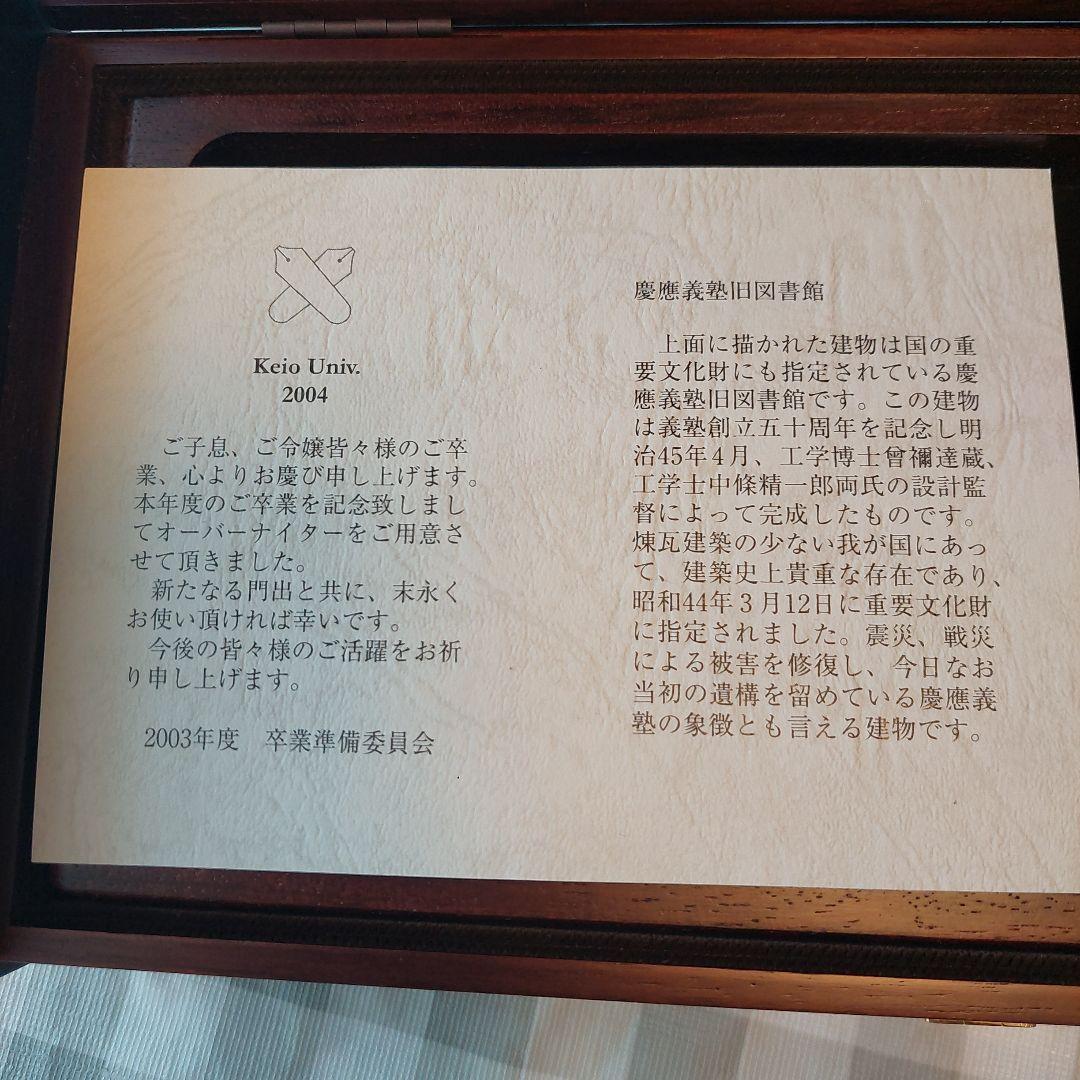 Keio Univ.
2004
ご子息、ご令嬢皆々様のご卒
業、心よりお慶び申し上げます。
本年度のご卒業を記念致しまし
てオーバーナイターをご用意さ
せて頂きました。
新たなる門出と共に、末永く
お使い頂ければ幸いです。
今後の皆々様のご活躍をお祈
り申し上げます。
2003年度　卒業準備委員会
慶應義塾旧図書館
上面に描かれた建物は国の重
要文化財にも指定されている慶
應義塾旧図書館です。この建物
は義塾創立五十周年を記念し明
治45年4月、工学博士曾禰達蔵、
工学士中條精一郎両氏の設計監
督によって完成したものです。
煉瓦建築の少ない我が国にあっ
て、建築史上貴重な存在であり、
昭和44年3月12日に重要文化財
に指定されました。震災、戦災
による被害を修復し、今日なお
当初の遺構を留めている慶應義
塾の象徴とも言える建物です。